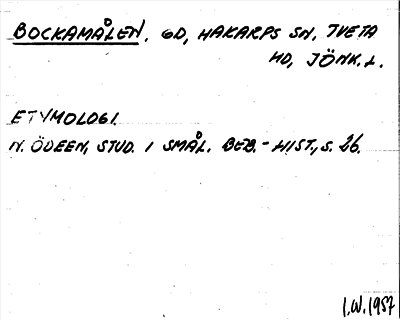 BOCKAMÅLEN. GD, HAKARPS SN, TVETA
HD, JÖNK. L.
ETYMOLOGI.
N. ÖDEEN, STUD. I SMÅL. BEB.-HIST., S. 26.
I.W. 1957